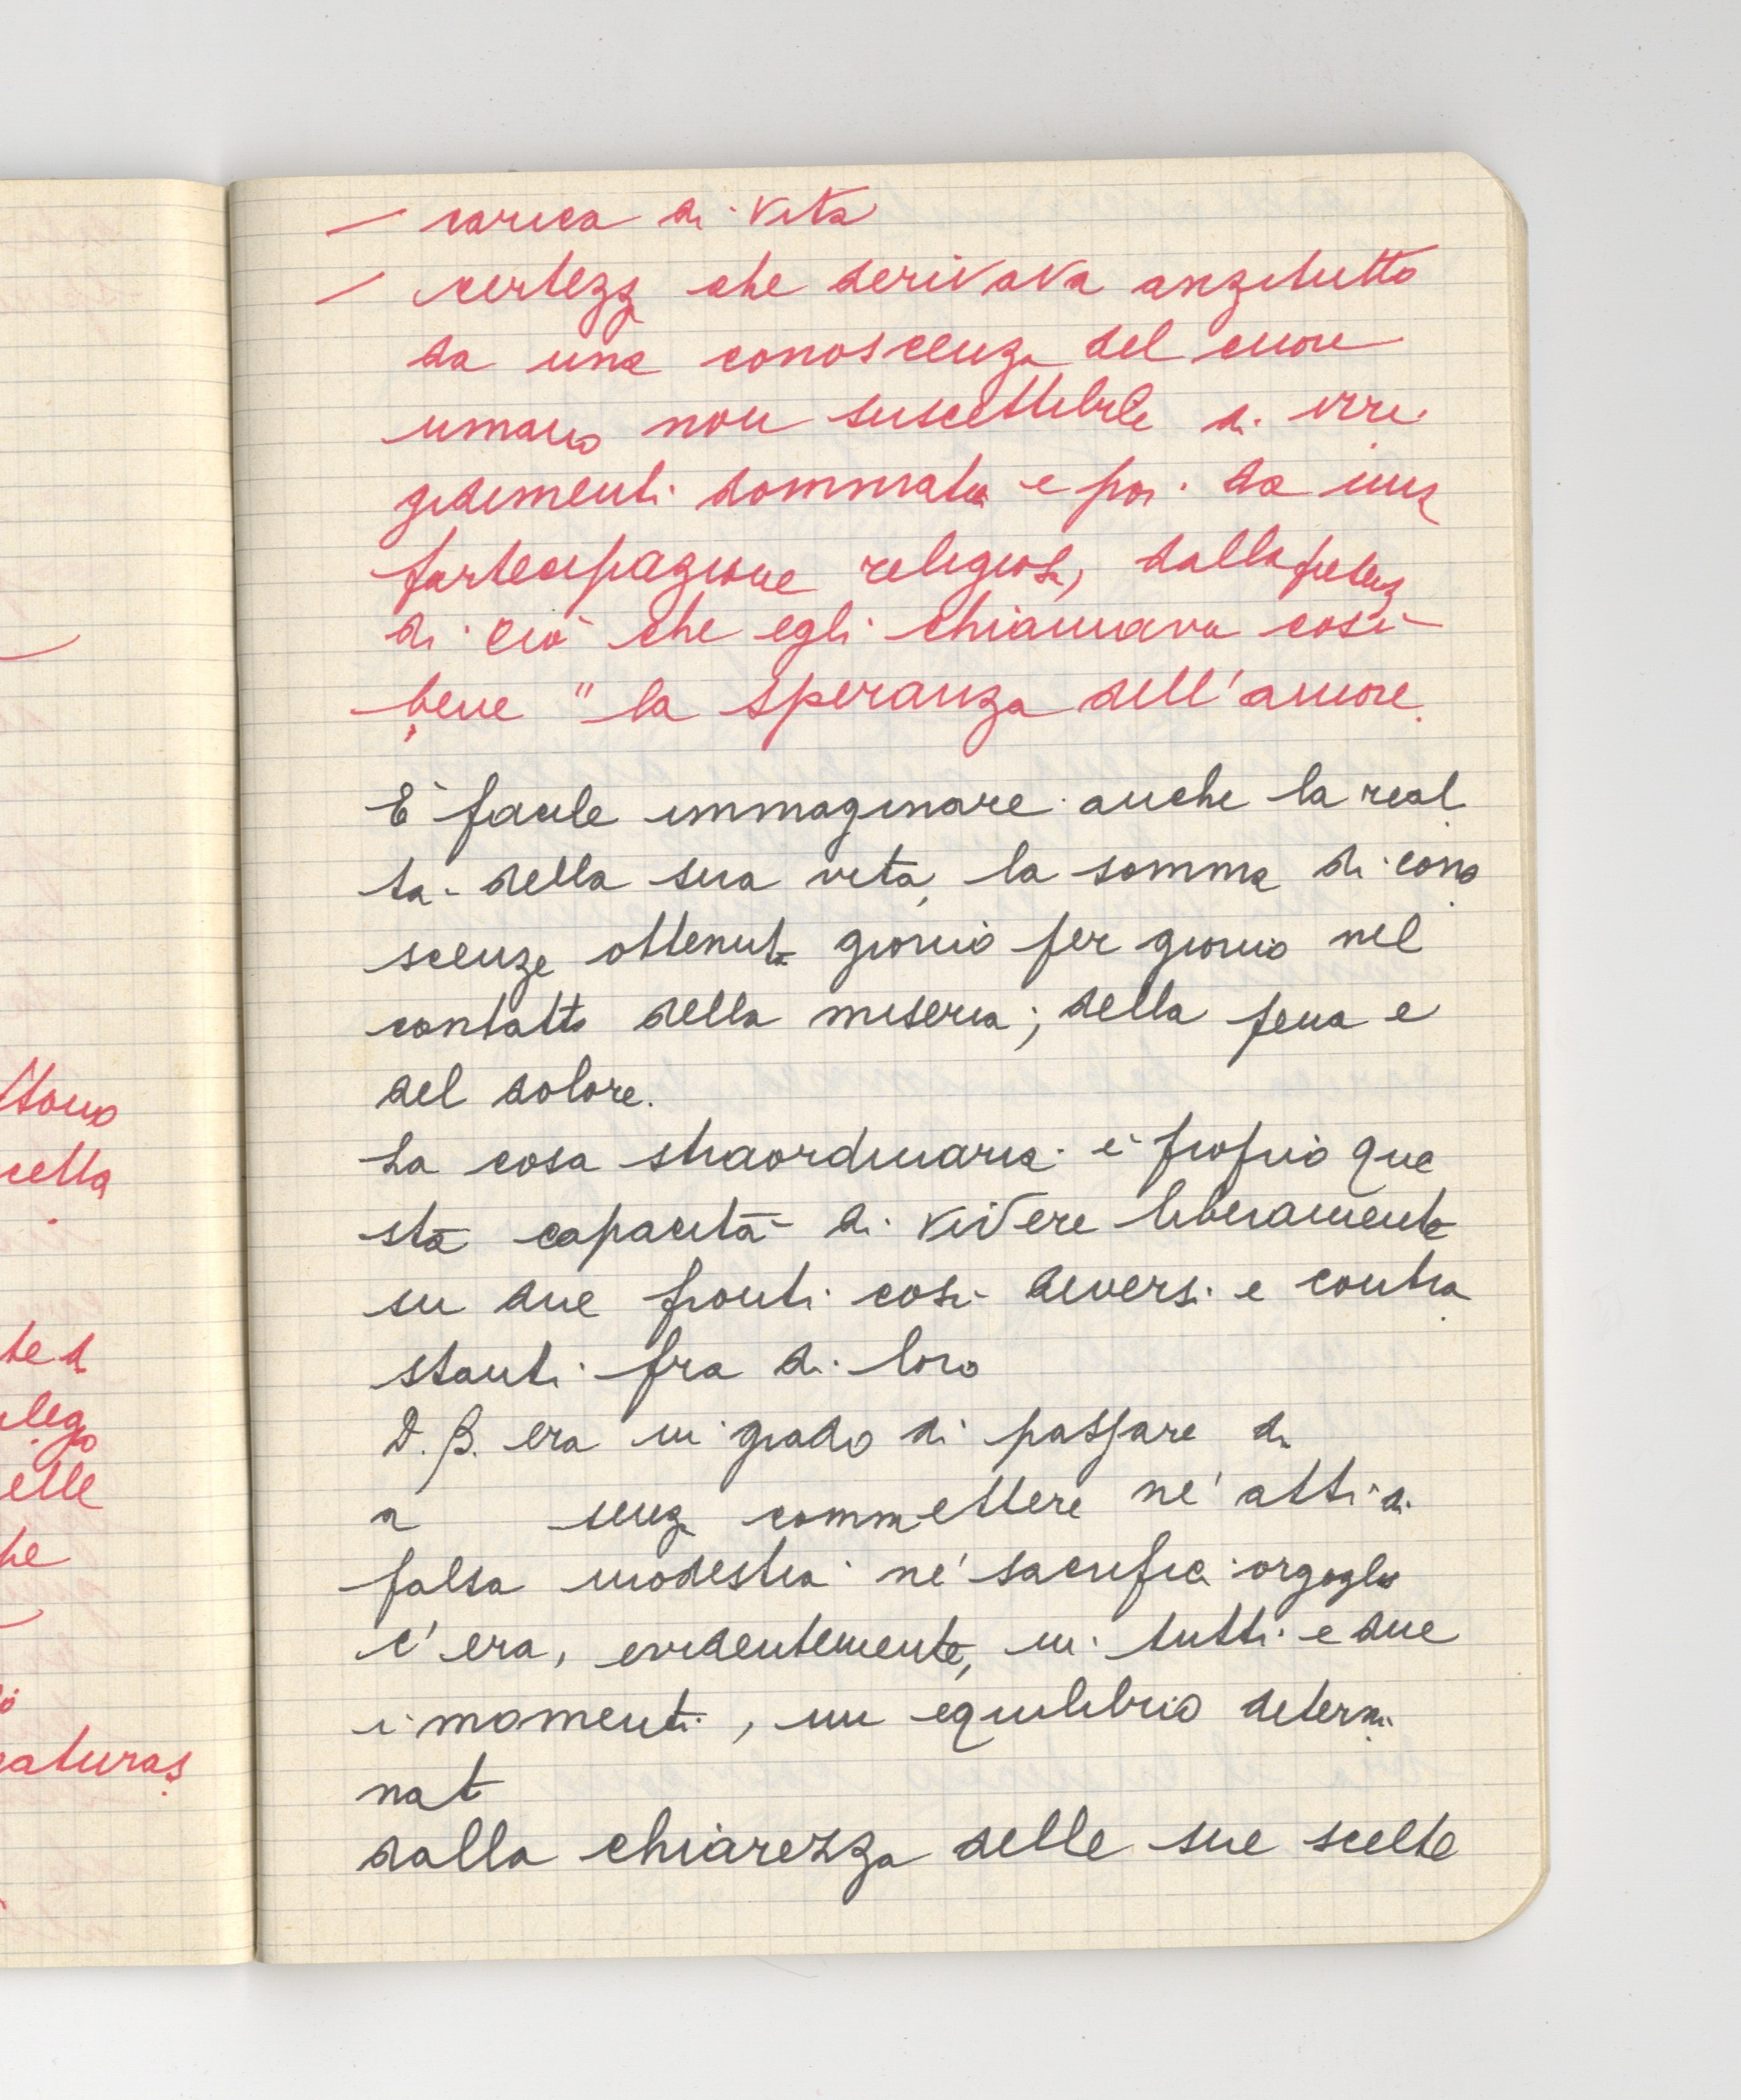 – carica di vita
– certezz che derivava anzitutto
da una conoscenza del cuore
umano non suscettibile di irri
gidimenti dommatici e poi da una
partecipazione religiosa, dalla
di ciò che egli chiamava così
bene "la speranza dell'amore.
E' facile immaginare anche la real
tà della sua vita, la somma di cono
scenze ottenute giorno per giorno nel
contatto della miseria; della pena e
del dolore.
La cosa straordinaria è proprio que
sta capacità di vivere liberamente
su due fronti così diversi e contra
stanti fra di loro
D. B. era in grado di passare da
a senza commettere né atti di
falsa modestia né sacrifici orgoglio
c'era, evidentemente, in tutti e due
i momenti, un equilibrio determi
nat
dalla chiarezza delle sue scelte
ttono
cella
te d
ileg
elle
he
caturas